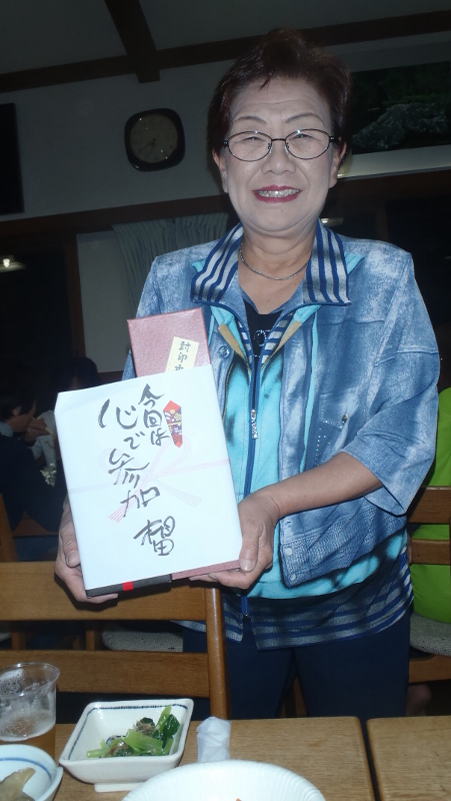 今回は
心で参加
封印